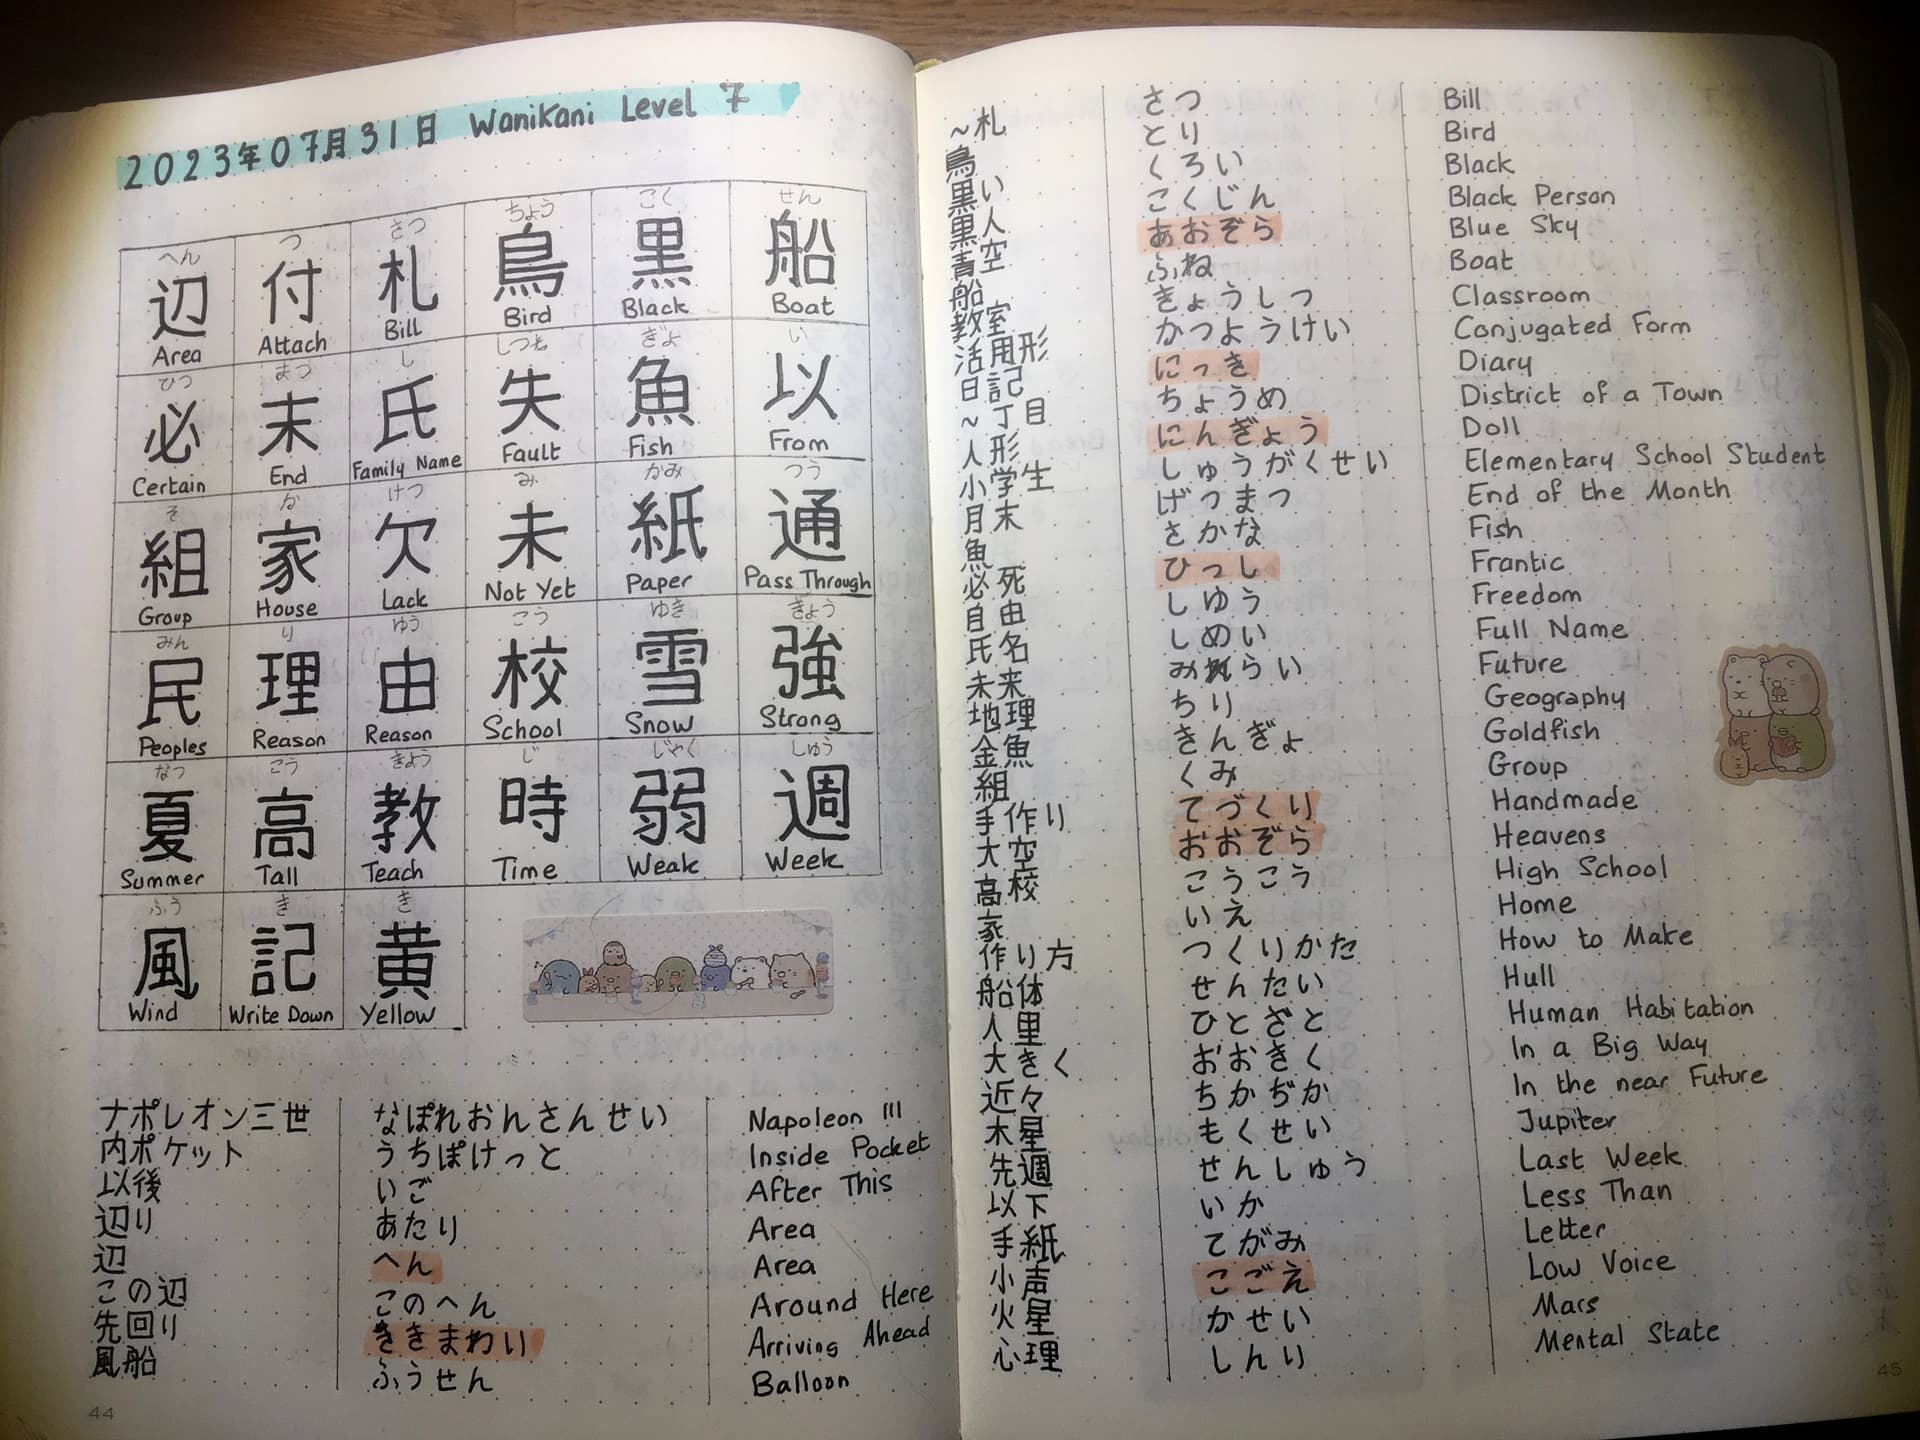 2023年07月31日 WaniKani Level 7
へん つ さつ ちょう こく せん
辺 付 札 鳥 黒 船
Area Attach Bill Bird Black Boat
ひつ まつ し しつ ぎょ い
必 末 氏 失 魚 以
Certain End Family Name Fault Fish From
そ か けつ み かみ つう
組 家 欠 未 紙 通
Group House Lack Not Yet Paper Pass Through
みん り ゆう こう ゆき きょう
民 理 由 校 雪 強
Peoples Reason Reason School Snow Strong
なつ こう きょう じ じゃく しゅう
夏 高 教 時 弱 週
Summer Tall Teach Time Weak Week
ふう き き
風 記 黄
Wind Write Down Yellow
ナポレオン三世 なぽれおんさんせい Napoleon III
内ポケット うちぽけっと Inside Pocket
以後 いご After This
辺り あたり Area
辺 へん Area
この辺 このへん Around Here
先回り きまわり Arriving Ahead
風船 ふうせん Balloon
44
~札 さつ Bill
鳥 とり Bird
黒い くろい Black
黒人 こくじん Black Person
青空 あおぞら Blue Sky
船 ふね Boat
教室 きょうしつ Classroom
活用形 かつようけい Conjugated Form
日記 にっき Diary
~丁目 ちょうめ District of a Town
人形 にんぎょう Doll
小学生 しゅうがくせい Elementary School Student
月末 げつまつ End of the Month
魚 さかな Fish
必死 ひっし Frantic
自由 しゆう Freedom
氏名 しめい Full Name
未来 みらい Future
地理 ちり Geography
金魚 きんぎょ Goldfish
組 くみ Group
手作り てづくり Handmade
大空 おおぞら Heavens
高校 こうこう High School
家 いえ Home
作り方 つくりかた How to Make
船体 せんたい Hull
人里 ひとざと Human Habitation
大きく おおきく In a Big Way
近々 ちかぢか In the near Future
木星 もくせい Jupiter
先週 せんしゅう Last Week
以下 いか Less Than
手紙 てがみ Letter
小声 こごえ Low Voice
火星 かせい Mars
心理 しんり Mental State
45